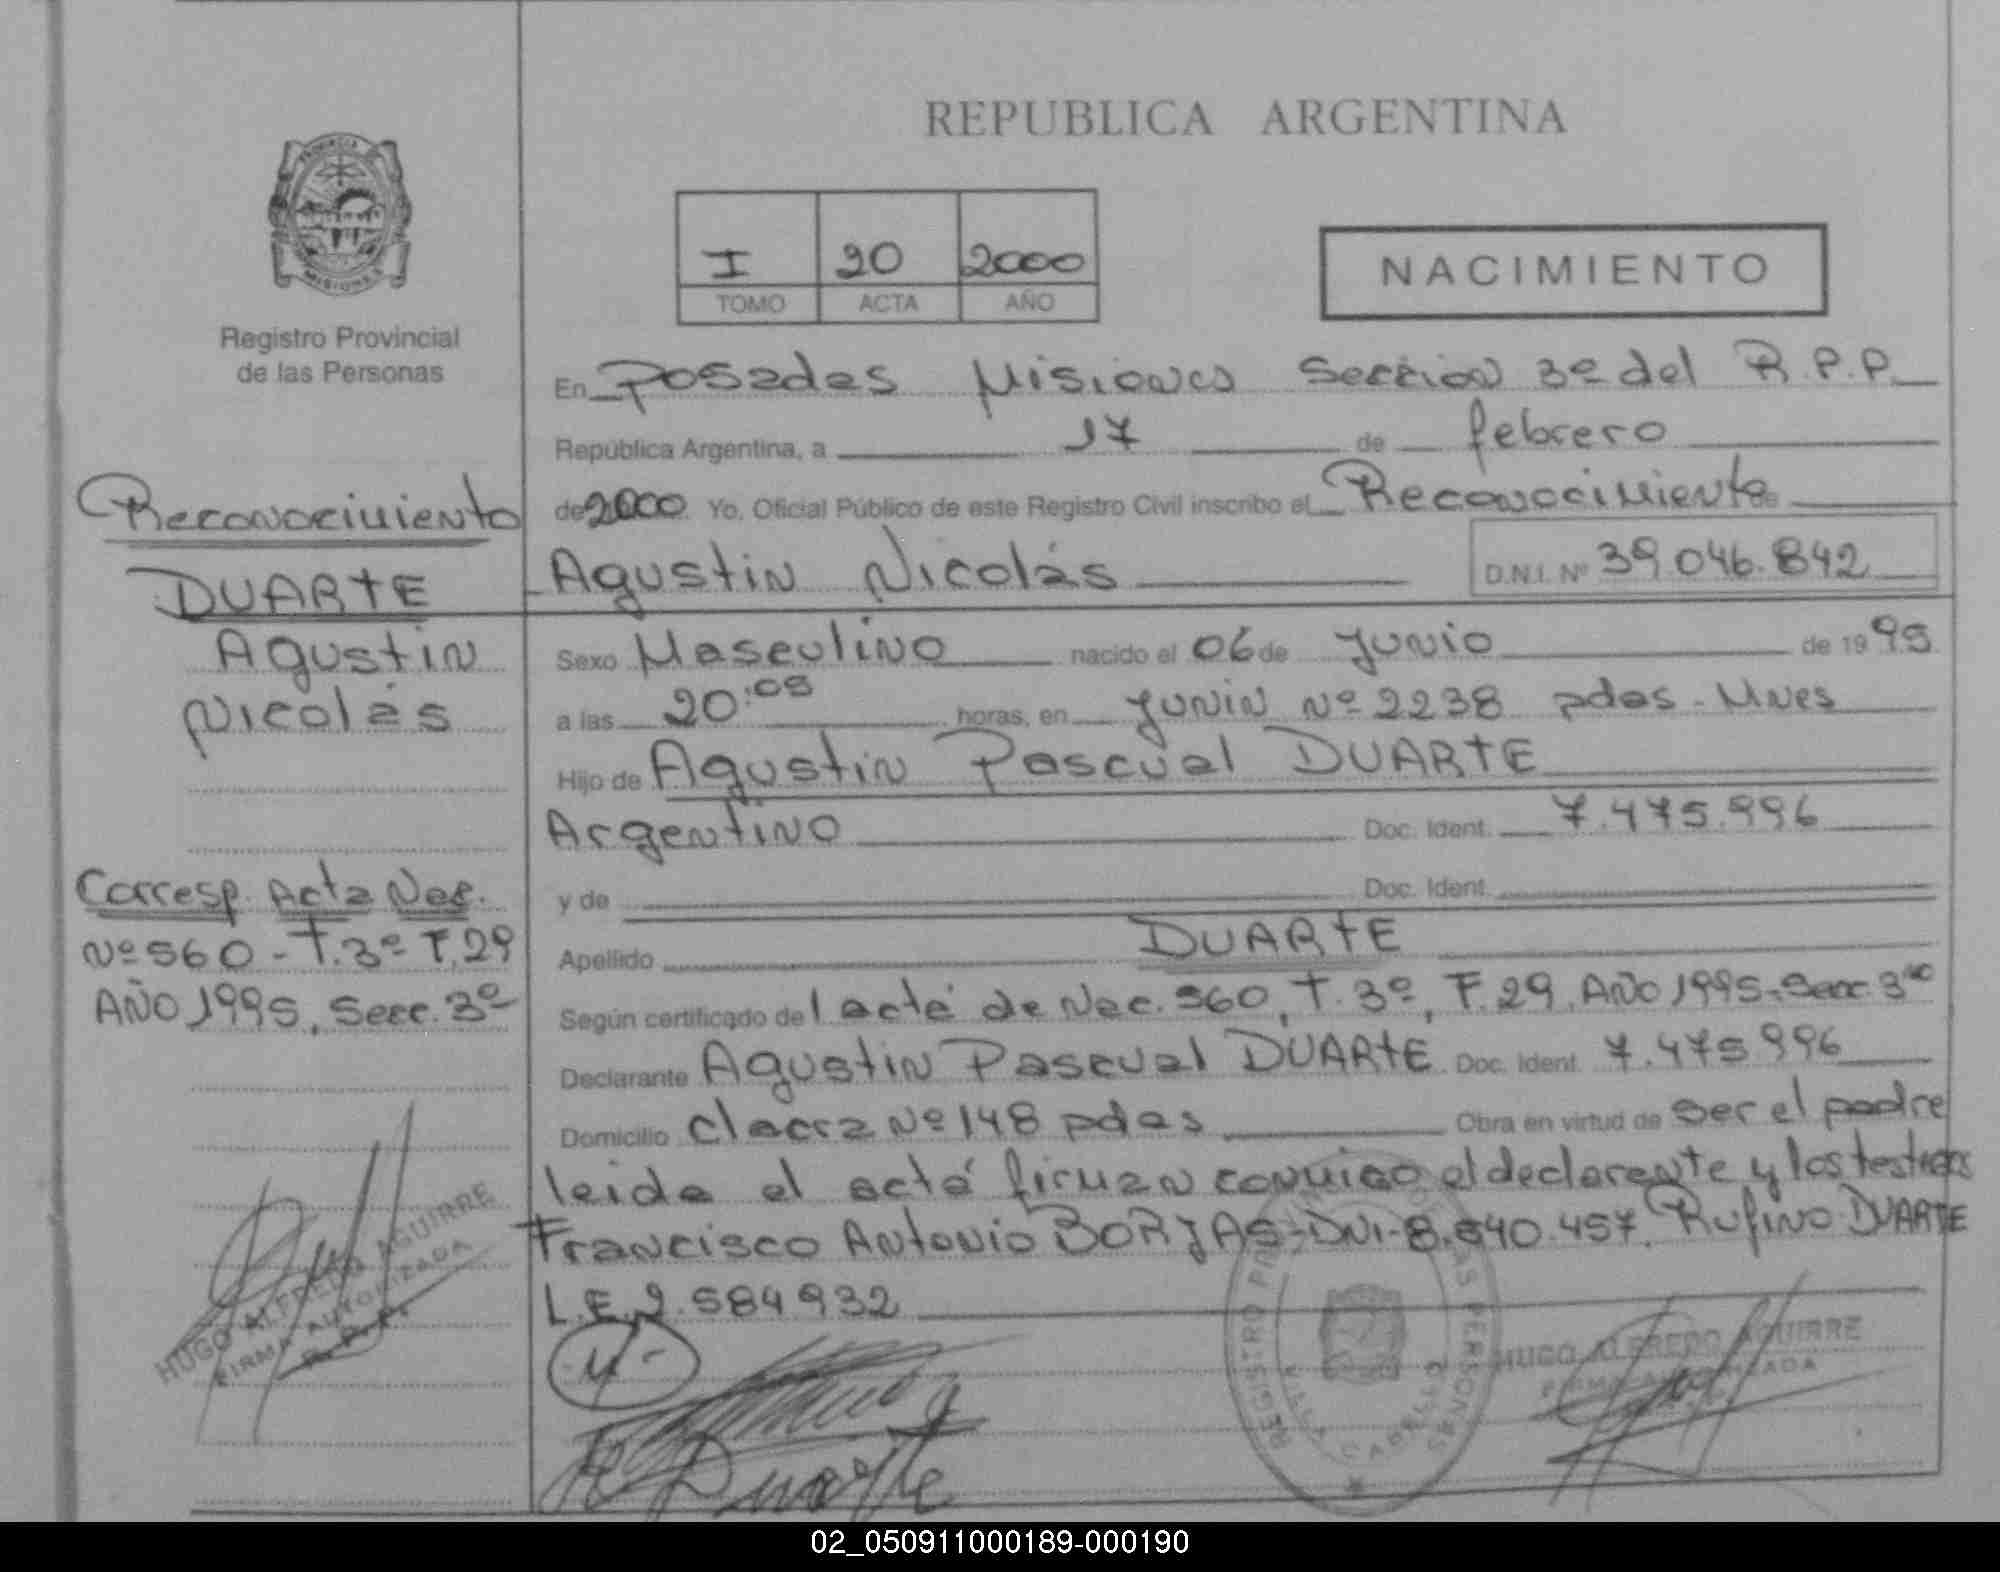 REPUBLICA ARGENTINA
PROVINCIA DE
MISIONES
Registro Provincial
de las Personas
I 20 2000
TOMO ACTA AÑO
NACIMIENTO
Reconocimiento
DUARTE
Agustin
Nicolás
Corresp. Acta Nac.
Nº 560 - T. 3º F. 29
AÑO 1995, Secc. 3º
HUGO ALFREDO AGUIRRE
FIRMA AUTORIZADA
R. P. P.
En Posadas Misiones Seccion 3º del R.P.P.
República Argentina, a 17 de febrero
de 2000. Yo, Oficial Público de este Registro Civil inscribo el Reconocimiento de
Agustin Nicolás D.N.I. Nº 39.046.842
Sexo Masculino nacido el 06 de Junio de 1995
a las 20:05 horas, en Junin Nº 2238 pdas - Mnes
Hijo de Agustin Pascual DUARTE
Argentino Doc. Ident. 7.475.996
y de Doc. Ident.
Apellido DUARTE
Según certificado del acta de Nac. 560, T. 3º, F. 29, AÑO 1995, Secc. 3
Declarante Agustin Pascual DUARTE Doc. Ident. 7.475.996
Domicilio Chacra Nº 148 pdas Obra en virtud de ser el padre
leida el acta firman conmigo el declarante y los testigos
Francisco Antonio BORJAS - DNI - 8.540.457. Rufino DUARTE
L.E. 2.584.932
R Duarte
REGISTRO PROVINCIAL DE LAS PERSONAS
VILLA CABELLO
HUGO ALFREDO AGUIRRE
FIRMA AUTORIZADA
02_050911000189-000190